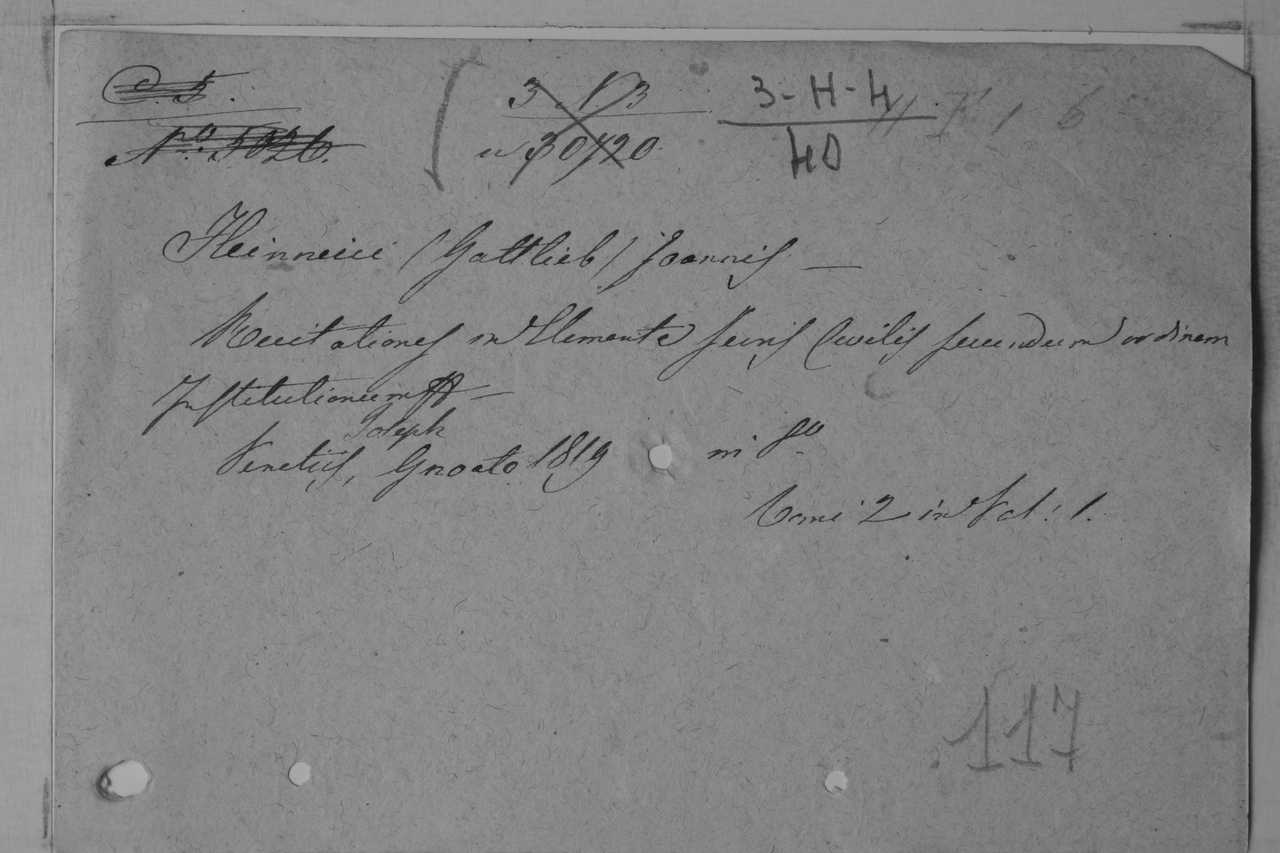 C. 5.
Nº 5026.
3 N 3
30/20
3-H-4
40
Heinneici (Gottlieb) Joannis —
Recitationes in Elementa Juris Civilis secundum ordinem
Institutionum —
Joseph
Venetiis, Gnoato 1819 in 8º
Tomi 2 in Vol: 1.
117